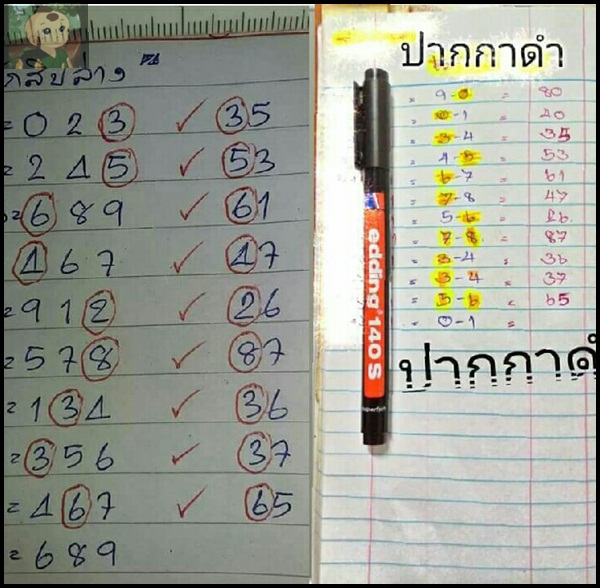 =023 ✓ 35
=245 ✓ 53
=689 ✓ 61
467 ✓ 47
=912 ✓ 26
=578 ✓ 87
=134 ✓ 36
=356 ✓ 37
=467 ✓ 65
=689
ปากกาดำ
= 9-0 = 80
= 0-1 = 20
= 3-4 = 35
= 4-5 = 53
= 6-7 = 61
= 7-8 = 47
= 5-6 = 26
= 7-8 = 87
= 3-4 = 36
= 3-4 = 37
= 5-6 = 65
= 0-1 =
edding 140 S
ปากกาดำ